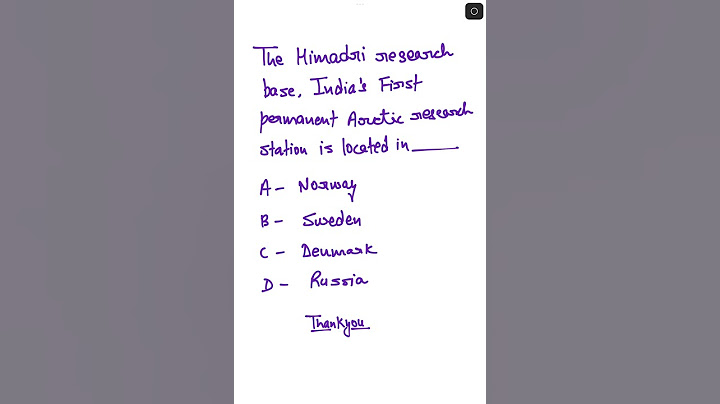 The Himadri research
base, India's First
permanent Arctic research
station is located in_____
A- Norway
B- Sweden
C- Denmark
D- Russia
Thankyou